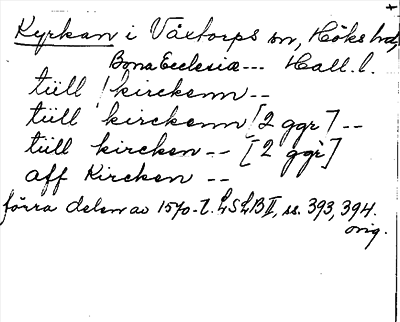 Kyrkan i Våxtorps sn, Höks hd,
Bona Ecclesiæ --- Hall. l.
tüll kirckenn --
tüll kirckenn [2 ggr] --
tüll kircken -- [2 ggr]
aff Kircken --
förra delen av 1570-t. LSLB II, ss. 393, 394.
orig.